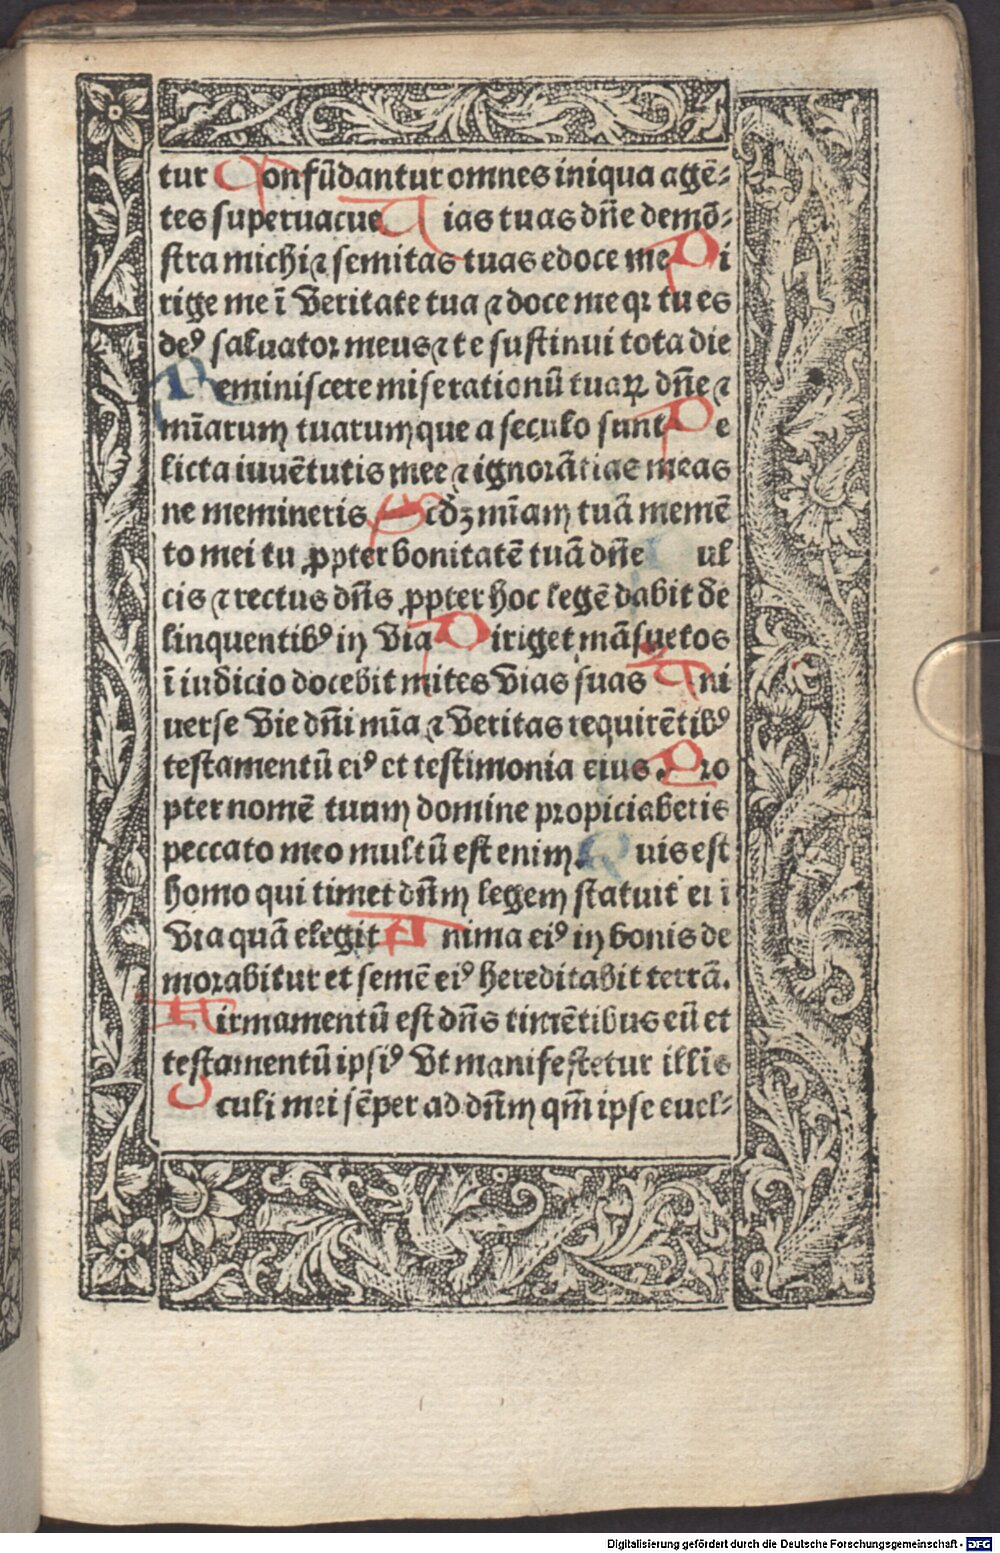 tur Confūdantur omnes iniqua agē⸗
tes superuacue Uias tuas dn̄e demō⸗
stra michi ⁊ semitas tuas edoce me Di
rige me ī veritate tua ⁊ doce me qꝛ tu es
deꝰ saluator meus ⁊ te sustinui tota die
Reminiscere miserationū tuaꝝ dn̄e ⁊
mīarum tuarum que a seculo sunt De
licta iuuētutis mee ⁊ ignorātias meas
ne memineris Scd̄ꝫ mīam tuā memē
to mei tu ꝓpter bonitatē tuā dn̄e Dul
cis ⁊ rectus dn̄s ꝓpter hoc legē dabit de
linquentibꝰ in via Diriget māsuetos
ī iudicio docebit mites vias suas Uni
uerse vie dn̄i mīa ⁊ veritas requirētibꝰ
testamentū eiꝰ et testimonia eius. Pro
pter nomē tuum domine propiciaberis
peccato meo multū est enim. Quis est
homo qui timet dn̄m legem statuit ei ī
via quā elegit Anima eiꝰ in bonis de
morabitur et semē eiꝰ hereditabit terrā.
Firmamentū est dn̄s timētibus eū et
testamentū ipsiꝰ vt manifestetur illis
Oculi mei sēper ad dn̄m qm̄ ipse euel⸗
Digitalisierung gefördert durch die Deutsche Forschungsgemeinschaft - DFG